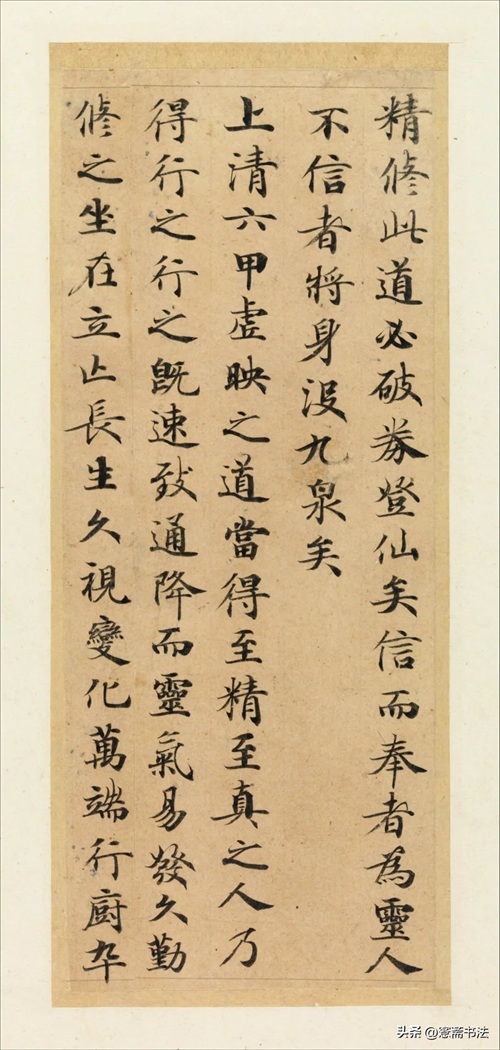 精脩此道必破券登仙矣信而奉者為靈人
不信者將身沒九泉矣
上清六甲虛映之道當得至精至真之人乃
得行之行之旣速致通降而靈氣易發久勤
脩之坐在立亾長生久視變化萬端行廚卒
头条 @憲斋书法